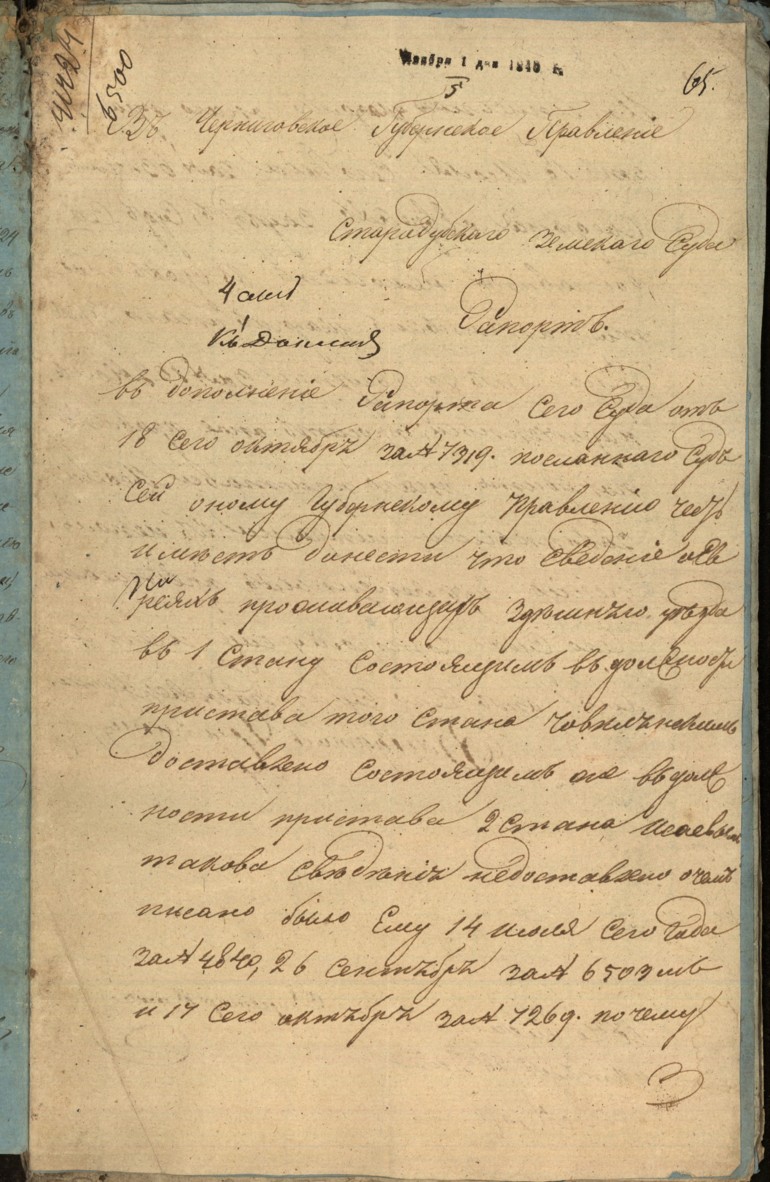 Ноября 1 дня 1840 г.
5
65.
6500
Въ Черниговское Губернское Правленіе
Стародубскаго Земскаго Суда
4 стол
Къ Докладу
Рапортъ.
въ дополненіе Рапорта сего Суда отъ
18 сего октябрь за № 7319. посланнаго Судъ
сей оному Губернскому Правленію честь
имеетъ донести что сведеніе о Ев
реяхъ проживающихъ здешнего уезда
въ 1 стану состоящимъ въ должност
пристава того стана
доставлено состоящимъ же въ долж
ности пристава 2 стана Исаевым
такова сведенія недоставлено о чемъ
писано было Ему 14 июля сего Года
за № 4840, 26 сентебрь за № 6503 мъ
и 17 сего октебрь за № 7269. почему